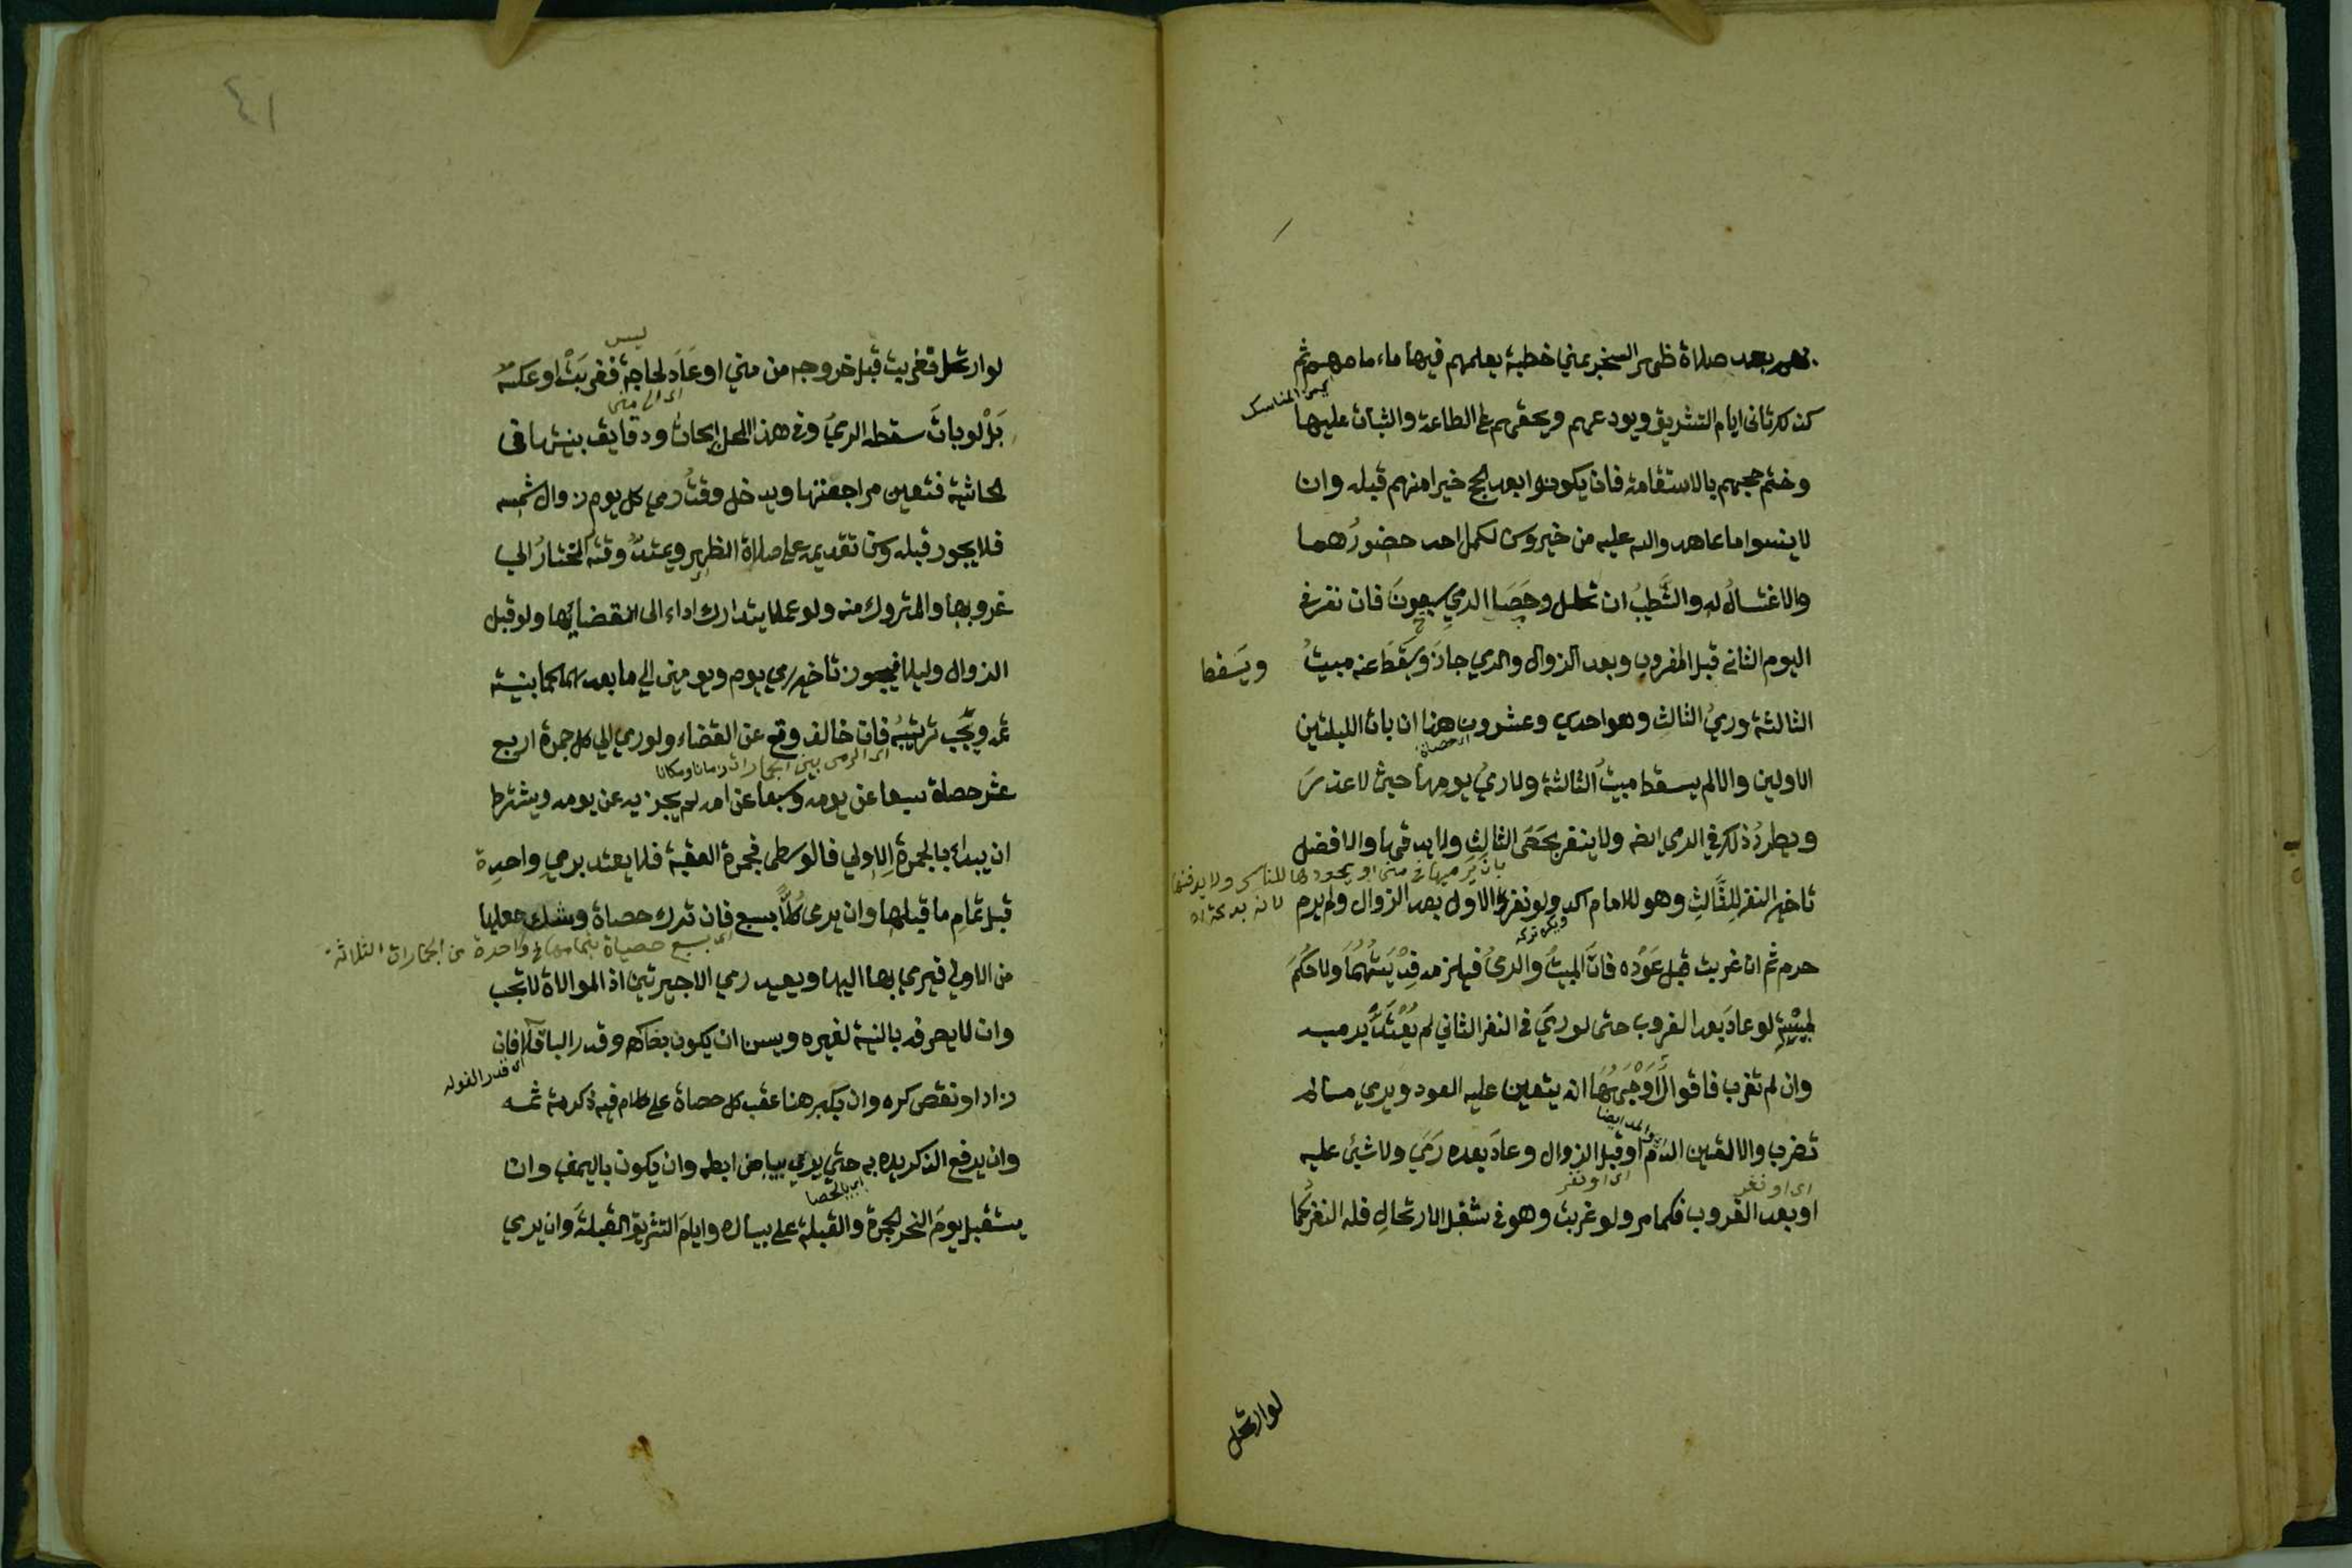 بعد صلاة ظهر النحر بمني خطبة يعلمهم فيها ماءمامهم ثم
من المناسك
كذلك ثاني ايام التشريق ويودعهم ويحثهم على الطاعة والثبات عليها
وختم حجهم بالاستقامة فان يكونوا بعد الحج خيرا منهم قبله وان
لا ينسوا ما عاهدوا الله عليه من خير وسن لكل احد حضورُهما
والاغتسالُ له والتَّطيُّبُ ان تحلل وحَصَا الرمي سبعونَ فان نفر في
اليوم الثاني قبل الغروب وبعد الزوال والرمي جازَ وسَقَطَ عنه مبيتُ
ويَسقط
الثالثة ورميُ الثالثِ وهو احدي وعشرون هنا ان بات الليلتين
حصاة
الاولين والا لم يسقط مبيتُ الثالثة ولا رميُ يومها حيث لا عذرَ
ويطردُ ذلك في الرمي ايضه ولا ينفر بحَصَى الثالثِ ولا يدفنها والافضل
بان يَرميها في منى او يعودها للناس ولا يدفنها
تاخير النفر للثَّالثِ وهو للامام اكد ولو نفر في الاول بعد الزوال ولم يرم
لانه بدعة اه
ويكره تركه
حرم ثم ان غربت قبل عَوْده فاتَ المبيتُ والرميُ فيلزمه فِدْيَتُهُمَا ولا حُكْمَ
لمبيْتِه لو عادَ بعد الغروب حتى لو رميَ في النفر الثاني لم يُعْتَدَّ برميه
وان لم تغرب فاقوالٌ اَوْجَهُهَا انه يتعين عليه العود ويرمي ما لم
والمد ايضا
تغرب والا تعين الدَّم او قبل الزوال وعادَ بعده رَمَيَ ولا شيئ عليه
اى او نفر
اى او نفر
او بعد الغروب فكما مر ولو غربت وهو في شغل الارتحالِ فله النفر كما
لوارتحل
٤١
لوارتحل فغربت قبل خروجه من مني او عَادَ لحاجة فغربَتْ او عكسه
ليس
اى الى منى
بَلْ لو باتَ سقطه الرميُ وفي هذا المحل ابحاث ودقايق بينتها في
الحاشية فتعين مراجعتها ويدخل وقتُ رمي كل يوم زوال شمسه
فلا يجوز قبله وسن تقديمه على صلاة الظهر ويمتدُّ وقته المختارُ الي
غروبها والمتروك منه ولو عمدا يتدارك اداء الى انقضائها ولو قبل
الزوال وليلا فيجوز تاخير رمي يوم ويومين الي ما بعدهما كما بنيته
ثمه ويجب ترتيبُه فان خالف وقع عن القضاء ولو رمي الي كل جمرة اربع
اى الرمى بين الجمارات زمانا ومكانا
عشر حصاة سبعا عن يومه وسبعا عن امسه لم يجزيه عن يومه ويشترط
ان يبداء بالجمرة الاولي فالوسطى فجمرة العقبة فلا يعتد برمي واحدة
قبل تمام ما قبلها وان يرمي كُلًّا بسبع فان ترك حصاة وشك جعلها
اى سبع حصياة بتمامها في واحدة من الجمارات الثلاثة
من الاولي فيرمي بها اليها ويعيد رمي الاخيرتين اذ الموالاة لا تجب
وان لا يصرفه بالنية لغيره ويسن ان يكون بحصاة وقدر الباقلا فان
اى قدر الفوله
زاد او نقص كره وان يكبر هنا عقب كل حصاة على كلام فيه ذكرته ثمه
وان يرفع الذكر يده به حتي يري بياض ابطه وان يكون باليمنى وان
اى بالحصا
يستقبل يومَ النحر الجمرة والقبلة على يساره وايام التشريق القبلةَ وان يرمي